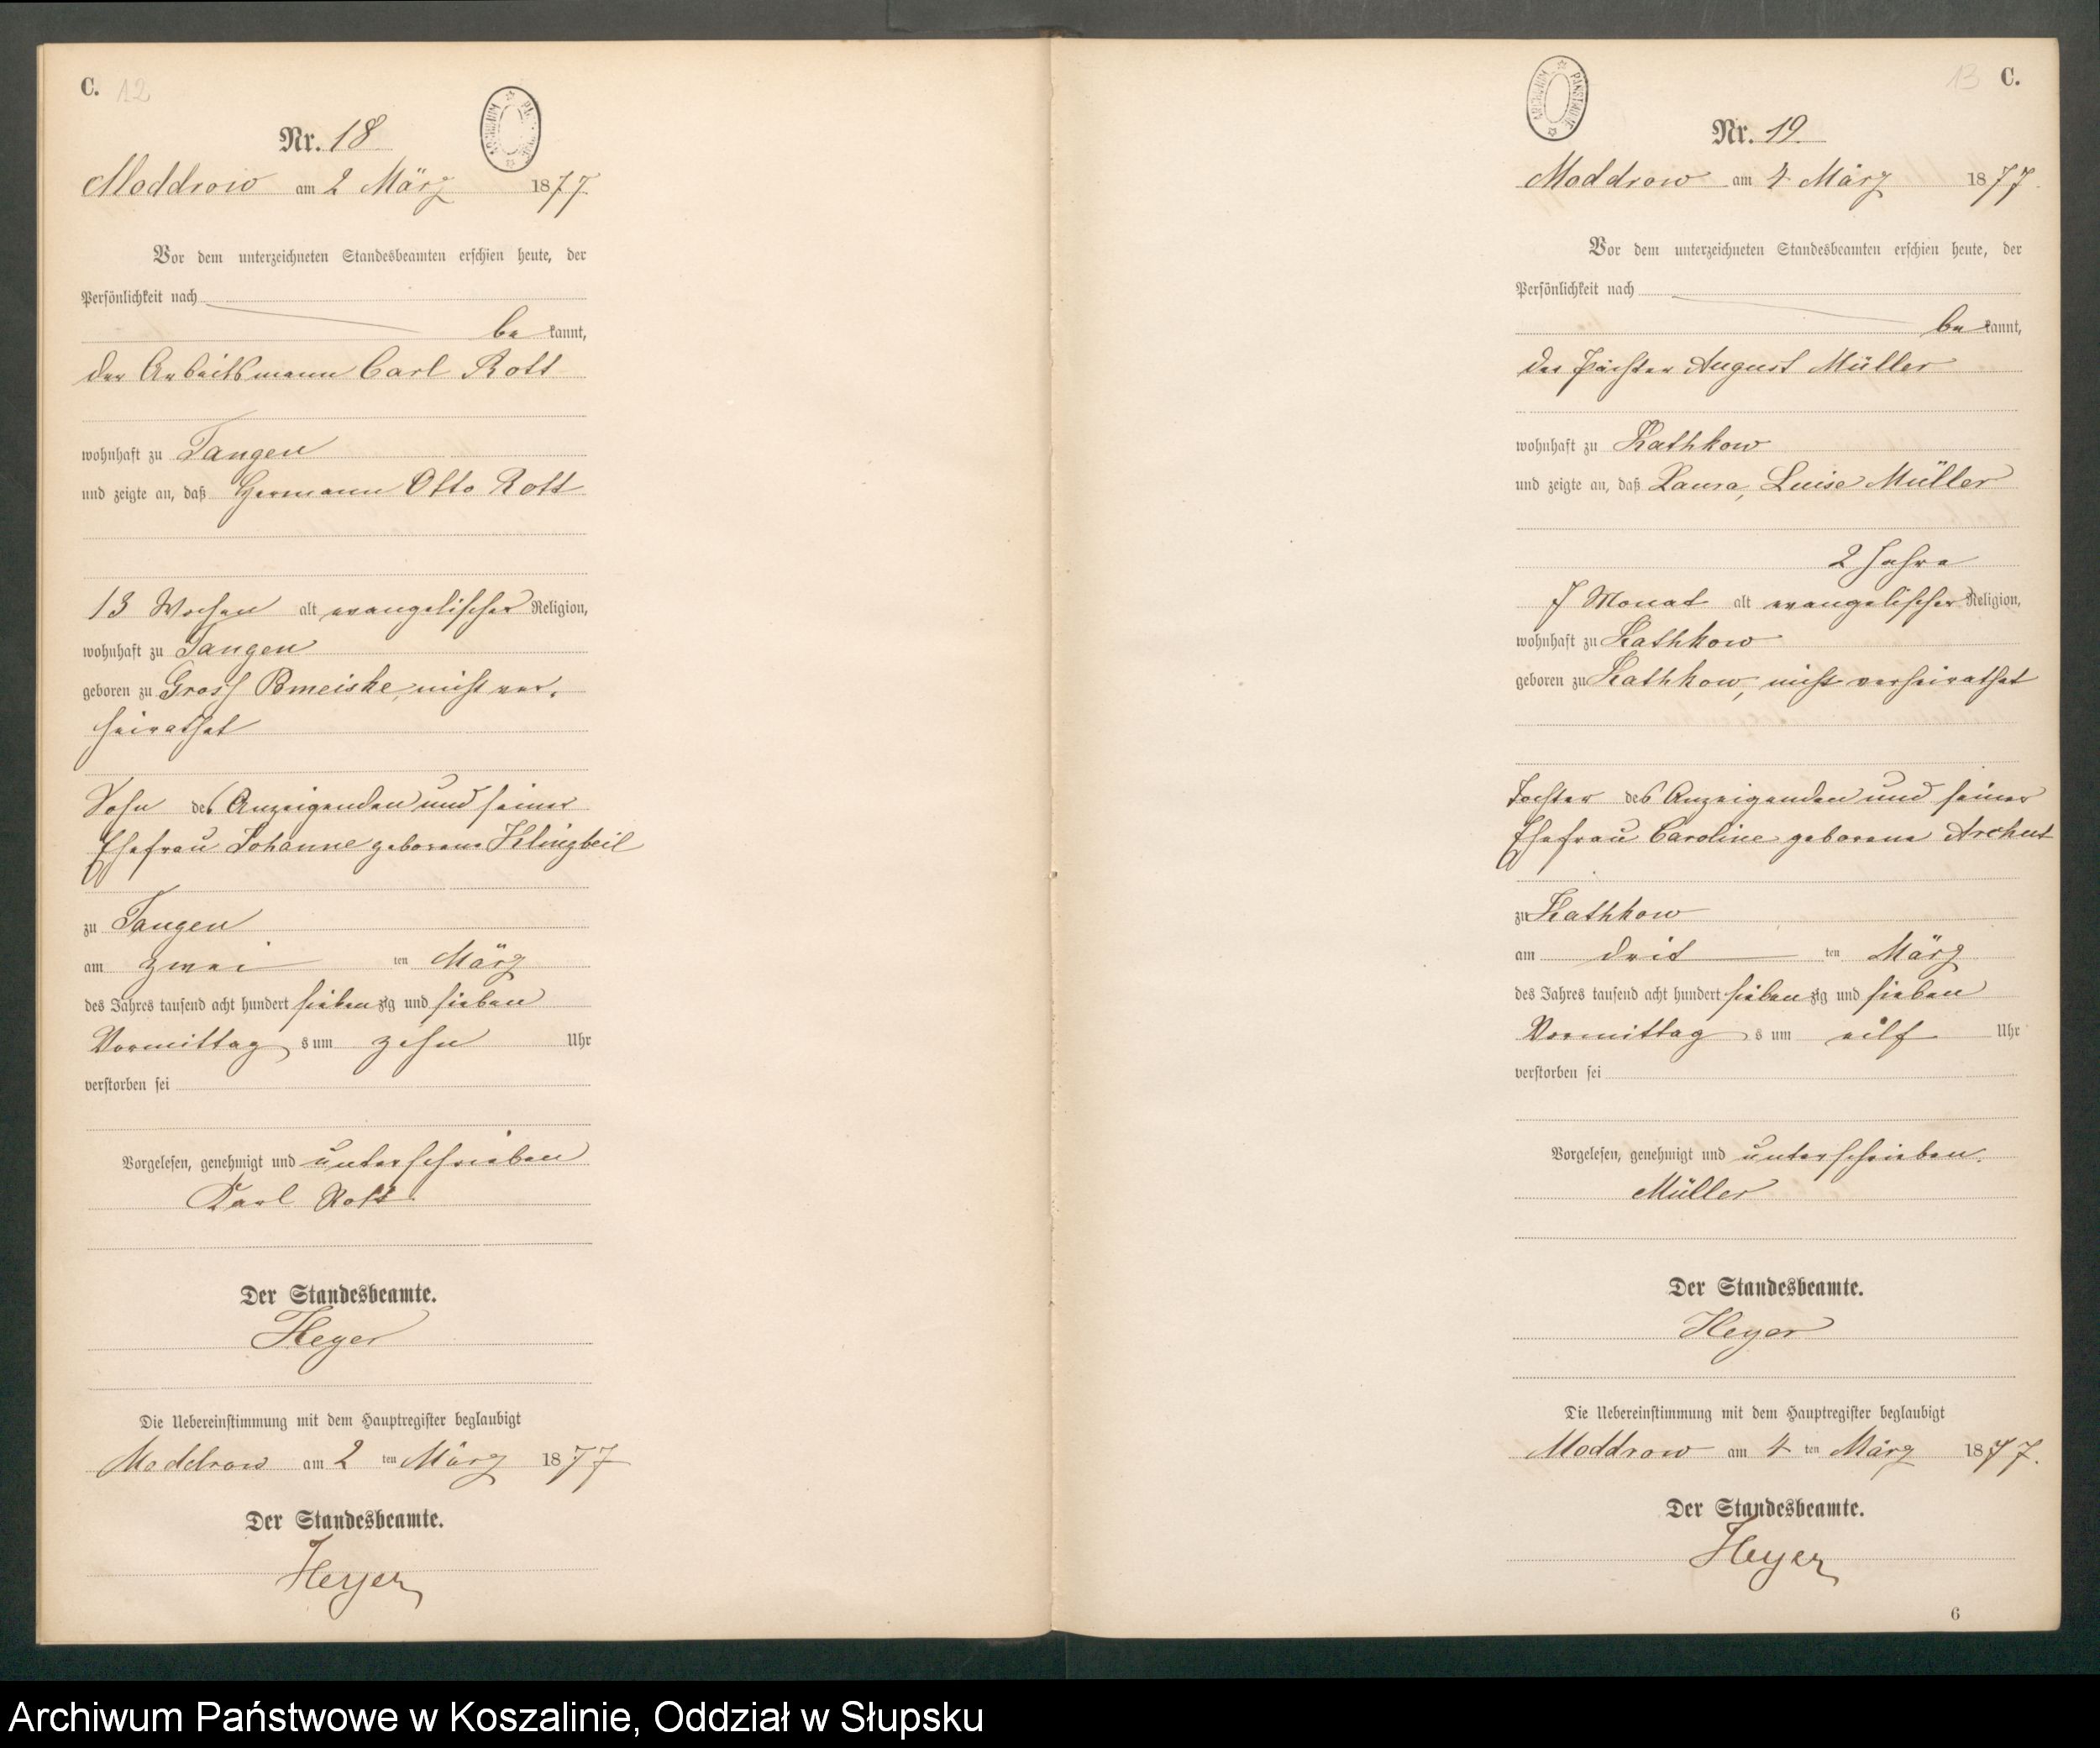 C. 12
ARCHIWUM PAŃSTWOWE
Nr. 18
Moddrow am 2 März 1877.
Vor dem unterzeichneten Standesbeamten erschien heute, der
Persönlichkeit nach
be kannt,
der Arbeitsmann Carl Rott
wohnhaft zu Tangen
und zeigte an, daß Hermann Otto Rott
13 Wochen alt evangelischer Religion,
wohnhaft zu Tangen
geboren zu Gross Pomeiske, nicht ver-
heirathet
Sohn des Anzeigenden und seiner
Ehefrau Johanne geborene Klingbeil
zu Tangen
am zwei ten März
des Jahres tausend acht hundert siebenzig und sieben
Vormittag s um zehn Uhr
verstorben sei
Vorgelesen, genehmigt und unterschrieben
Karl Rott
Der Standesbeamte.
Heyer
Die Uebereinstimmung mit dem Hauptregister beglaubigt
Moddrow am 2 ten März 1877
Der Standesbeamte.
Heyer
13 C.
ARCHIWUM PAŃSTWOWE
Nr. 19.
Moddrow am 4 März 1877.
Vor dem unterzeichneten Standesbeamten erschien heute, der
Persönlichkeit nach
be kannt,
der Pächter August Müller
wohnhaft zu Kathkow
und zeigte an, daß Laura, Luise Müller
2 Jahre
7 Monat alt evangelischer Religion,
wohnhaft zu Kathkow
geboren zu Kathkow, nicht verheirathet
Tochter des Anzeigenden und seiner
Ehefrau Caroline geborene Archut
zu Kathkow
am drit ten März
des Jahres tausend acht hundert siebenzig und sieben
Vormittag s um eilf Uhr
verstorben sei
Vorgelesen, genehmigt und unterschrieben.
Müller
Der Standesbeamte.
Heyer
Die Uebereinstimmung mit dem Hauptregister beglaubigt
Moddrow am 4 ten März 1877.
Der Standesbeamte.
Heyer
6
Archiwum Państwowe w Koszalinie, Oddział w Słupsku